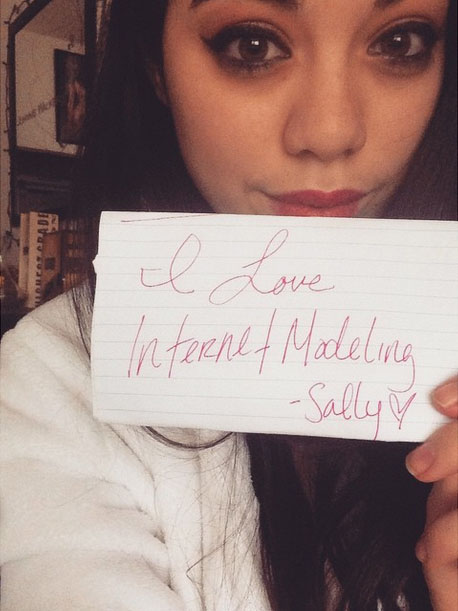 I Love
Internet Modeling
-Sally♡